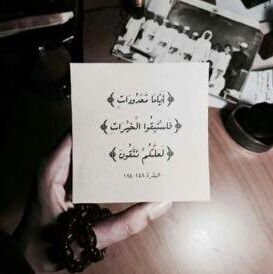 ﴿ أَيَّامًا مَعْدُودَاتٍ ﴾
﴿ فَاسْتَبِقُوا الْخَيْرَاتِ ﴾
﴿ لَعَلَّكُمْ تَتَّقُونَ ﴾
البقرة ١٤٨ - ١٨٥